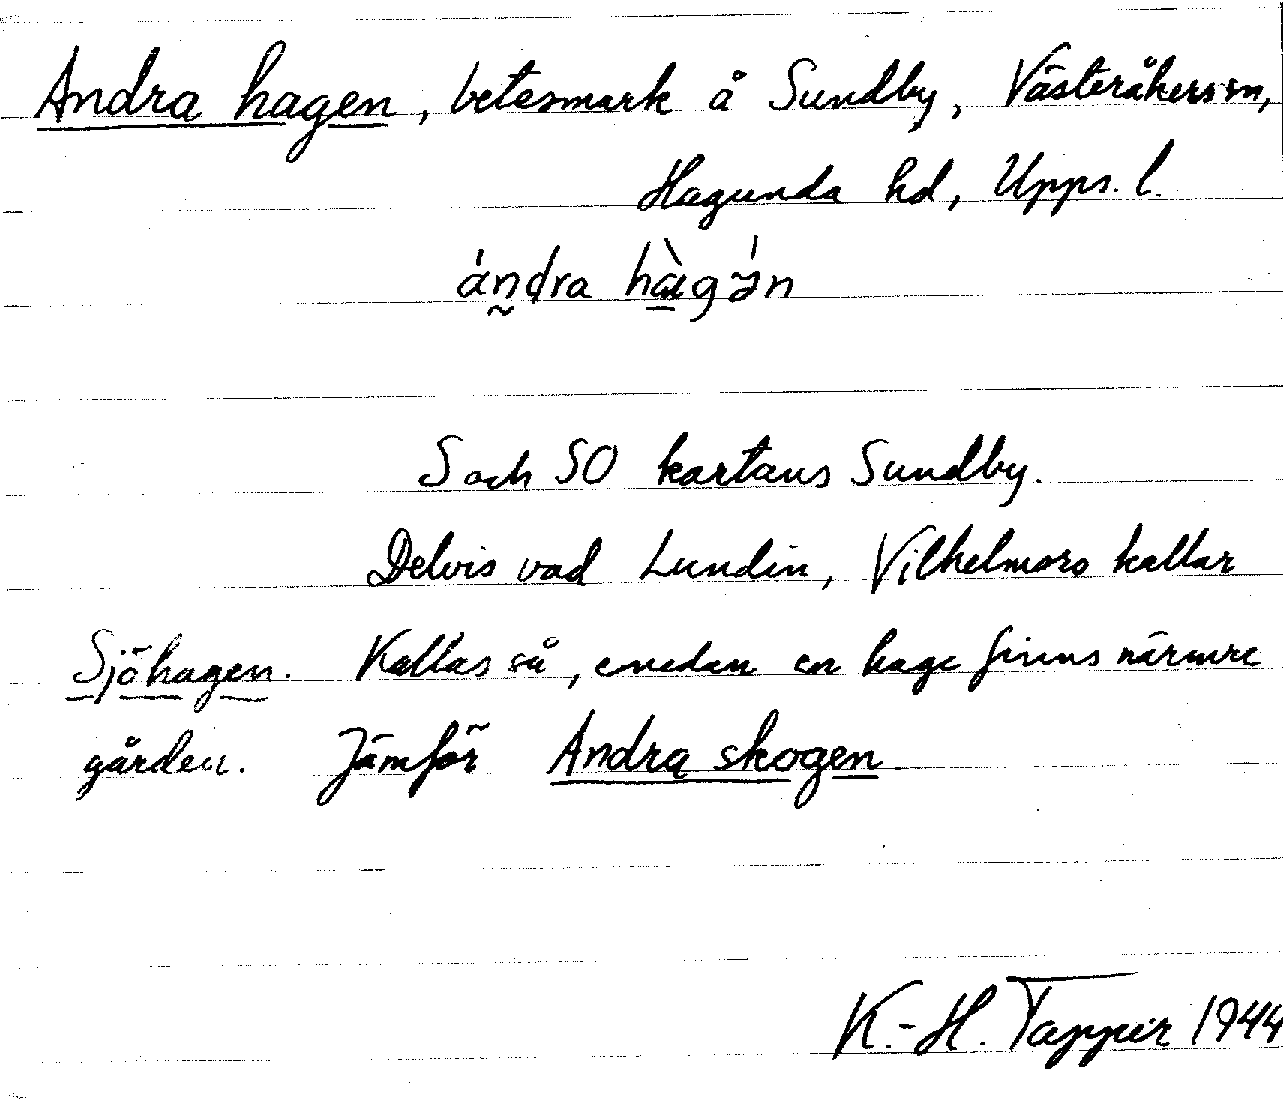 Andra hagen, betesmark å Sundby, Västeråkers sn,
Hagunda hd, Upps. l.
ándra hàgə́n
S och SO kartans Sundby.
Delvis vad Lundin, Vilhelmsro kallar
Sjöhagen. Kallas så, emedan en hage finns närmre
gården. Jämför Andra skogen
K.-H. Tapper 1944